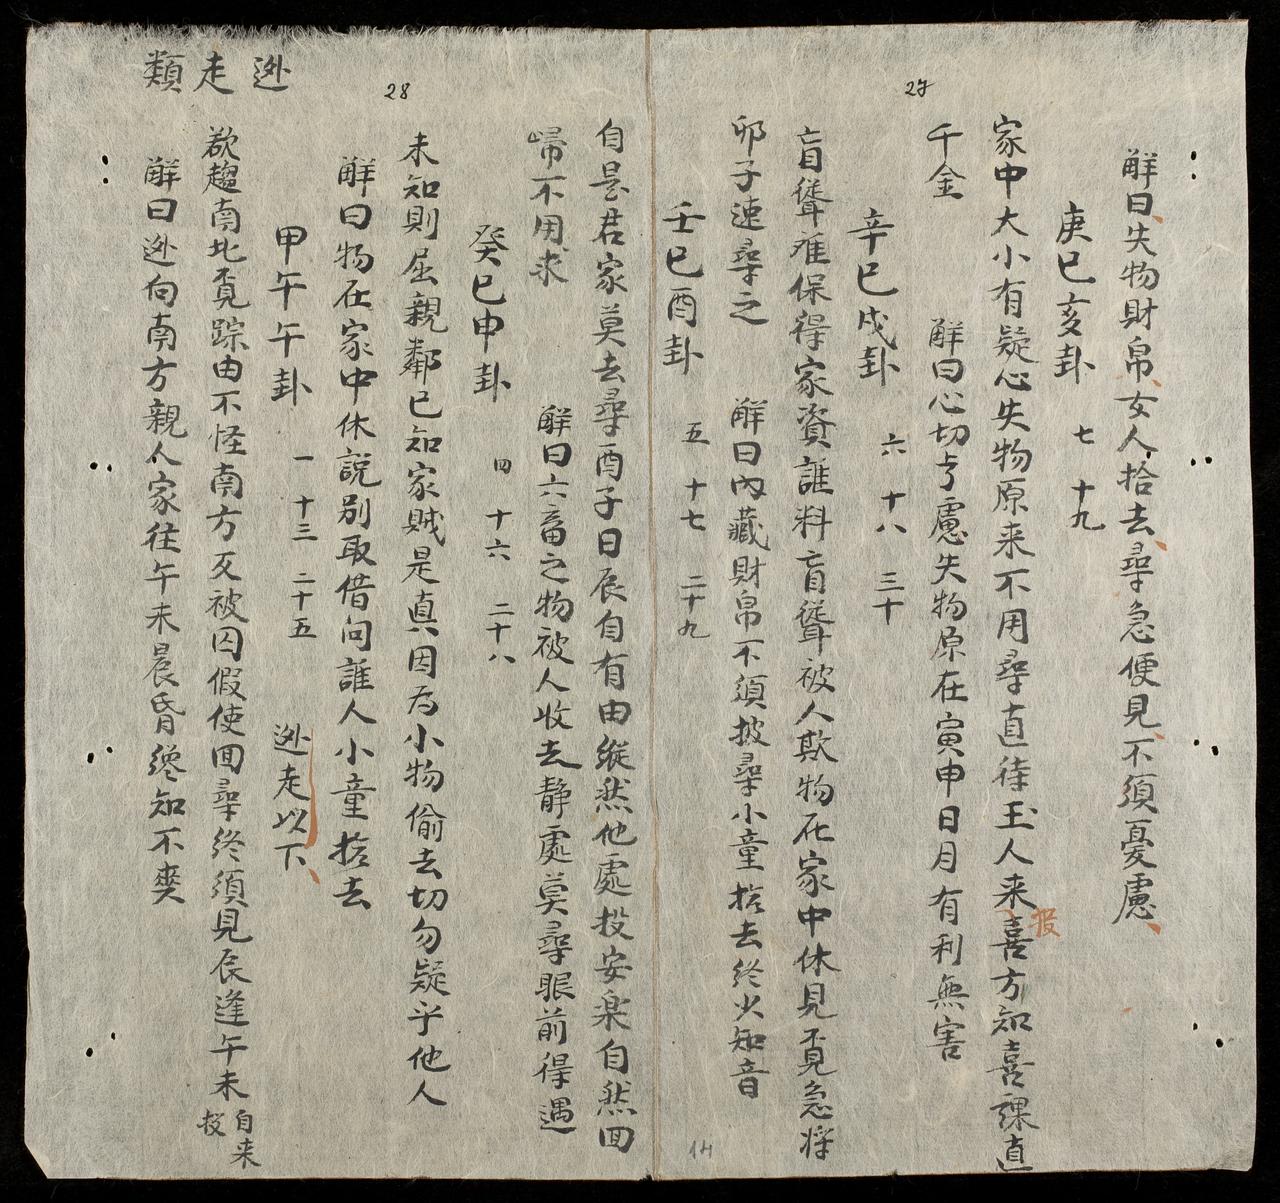 27
解曰失物財帛女人拾去尋急便見不須憂慮
庚巳亥卦 七 十九
家中大小有疑心失物原来不用尋直待玉人来喜方知喜課直
报
千金 解曰心切亐慮失物原在寅申日月有利無害
辛巳戌卦 六 十八 三十
盲聋难保得家資誰料盲聋被人欺物在家中休見覔急将
卯子速尋之 解曰內藏財帛不須披尋小童拾去终火知音
壬巳酉卦 五 十七 二十九
自是君家莫去尋酉子日辰自有由縱然他處投安楽自然囬
28
帰不用求 解曰六畜之物被人收去静處莫尋眼前得遇
癸巳申卦 四 十六 二十八
未知則屈親鄰已知家贼是真因为小物偷去切勿疑乎他人
解曰物在家中休說别取借问誰人小童拾去
甲午午卦 一 十三 二十五 迯走以下
欲趨南北覔踪由不怪南方反被囚假使囬尋终須見辰逢午未自来投
解曰迯向南方親人家往午未晨昏終知不爽
迯走類
14